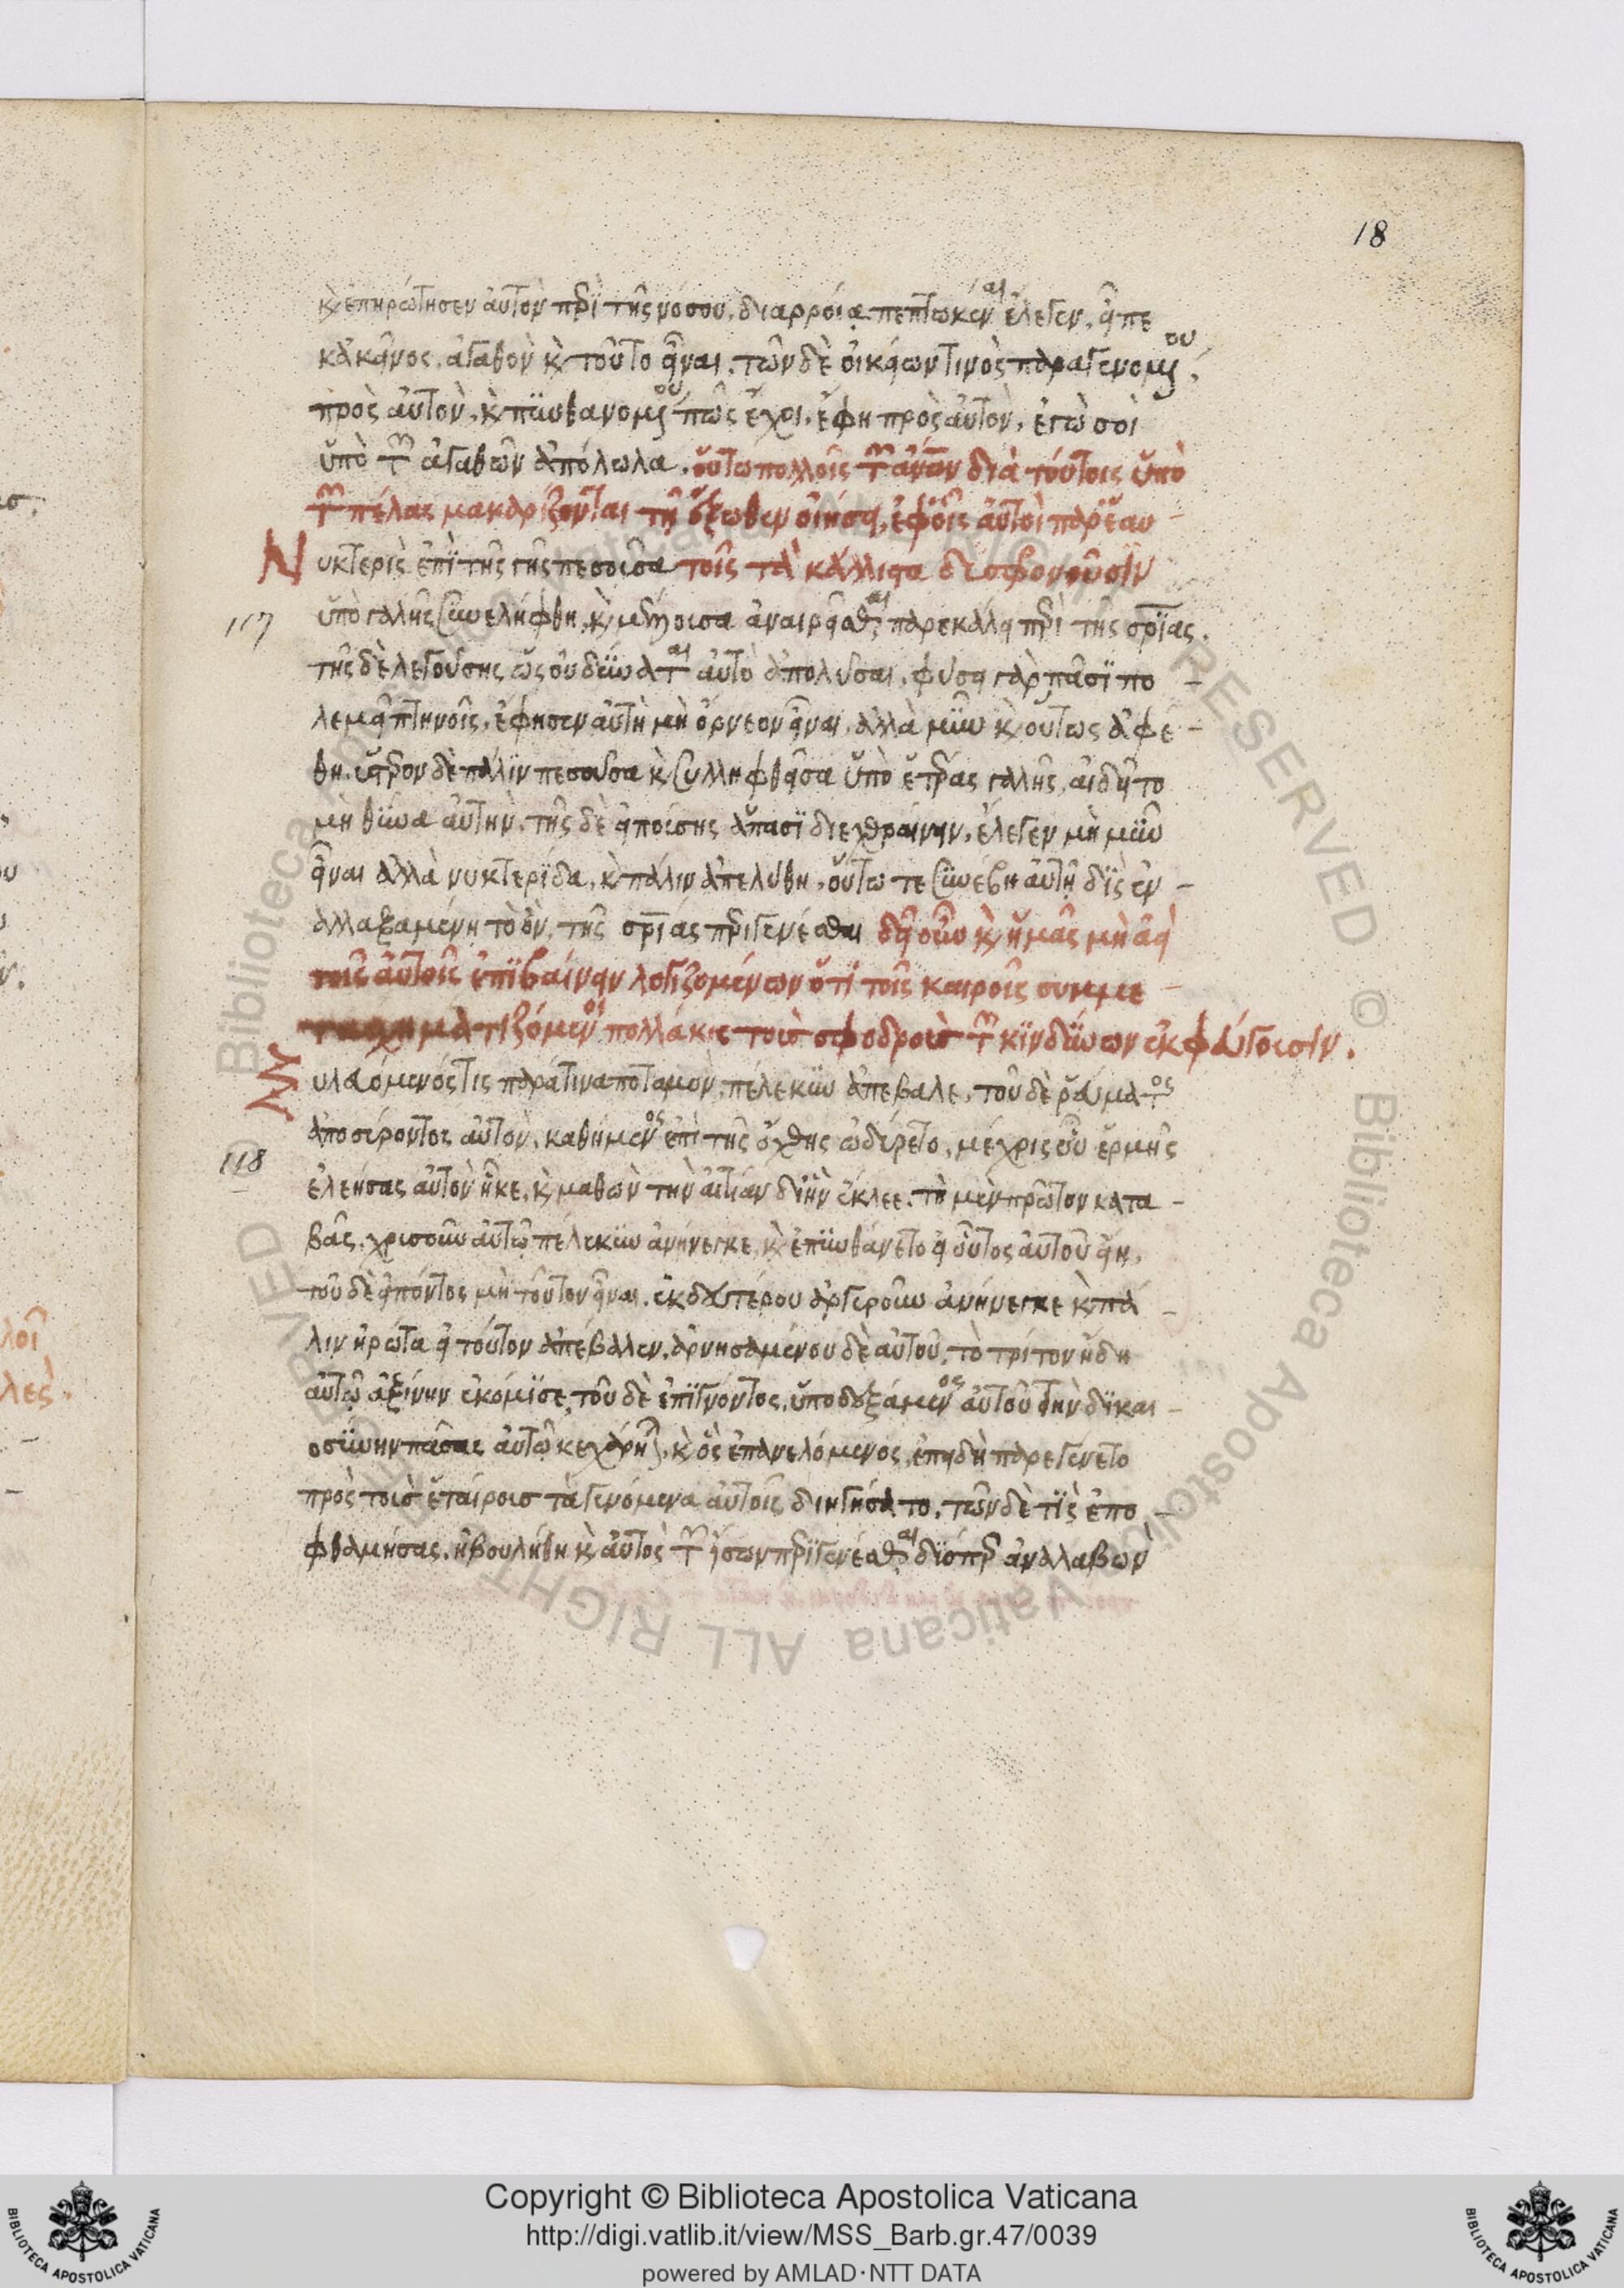 18
κ(αὶ) ἐπηρώτησεν αὐτὸν π(ε)ρὶ τῆς νόσου. διαρροία πεπτωκέναι ἔλεγεν. εἶπε
κἀκεῖνος. ἀγαθὸν κ(αὶ) τοῦτο εἶναι. τῶν δὲ οἰκείων τινὸς παραγενομ(έν)ου
πρὸς αὐτὸν. κ(αὶ) πϋνθανομ(έν)ου πῶς ἔχοι. ἔφη πρὸς αὐτὸν. ἐγώ σοὶ
ὑπὸ τῶν ἀγαθῶν ἀπόλωλα. οὕτω πολλοῖς τῶν ἀν(θρώπ)ων διὰ τούτοις ὑπὸ
τῶν πέλας μακαρίζονται τῇ ἔξωθεν οἰήσει, ἐφ' οἷς αὐτοὶ παρ' ἑαυ -
Νυκτερὶς ἐπὶ τῆς γῆς πεσοῦσα τοῖς τὰ κάλλιστα δισφονοῦσϊν
117
ὑπὸ γαλῆς συνελήφθη. κ(αὶ) μέλλουσα ἀναιρεῖσθαι παρεκάλει π(ε)ρὶ τῆς σ(ωτη)ρίας.
τῆς δὲ λεγούσης ὡς οὐ δύναται αὐτὸ ἀπολύσαι. φύσει γὰρ πᾶσϊ πο -
λεμεῖ πτηνοῖς. ἔφησεν αὐτὴ μὴ ὄρνεον εἶναι. ἀλλὰ μῦν κ(αὶ) οὕτως ἀφέ -
θη. ὕστερον δὲ πάλϊν πεσοῦσα κ(αὶ) συλληφθεῖσα ὑπὸ ἑτέρας γαλῆς, αἰδεῖτο
μὴ θῦναι αὐτὴν. τῆς δὲ εἰπούσης ἅπασϊ διεχθραίνειν. ἔλεγεν μὴ μῦν
εἶναι ἀλλὰ νυκτερίδα. κ(αὶ) πάλιν ἀπελύθη. οὕτω τε συνέβη αὐτῇ δὶς ἐν -
αλλαξαμένη τὸ ὂν. τῆς σ(ωτη)ρίας π(ε)ριγενέσθαι δεῖ οὖν κ(αὶ) ἡμᾶς μὴ ἀεὶ
τοῖς αὐτοῖς ἐπϊβαίνειν λογιζομένων ὅτϊ τοῖς καιροῖς συμμε -
τασχηματιζόμενοι πολλάκις τοὺς σφοδροὺς τῶν κϊνδύνων ἐκφεύγουσϊν.
Ξυλευόμενός τις παρά τινα ποταμὸν. πέλεκυν ἀπέβαλε. τοῦ δὲ ῥεύματος
118
ἀποσύροντος αὐτὸν. καθήμενος ἐπὶ τῆς ὄχθης ὠδύρετο. μέχρις οὗ ἑρμῆς
ἐλεήσας αὐτὸν ἧκε. κ(αὶ) μαθὼν τὴν αἰτίαν δϊ' ἣν ἔκλεε. τὸ μὲν πρῶτον κατα -
βὰς. χρυσοῦν αὐτῷ πέλεκυν ἀνήνεγκε. κ(αὶ) ἐπυνθάνετο εἰ οὗτος αὐτοῦ εἴη.
τοῦ δὲ εἰπόντος μὴ τοῦτον εἶναι. ἐκ δευτέρου ἀργυροῦν ἀνήνεγκε κ(αὶ) πά -
λιν ἠρώτα εἰ τοῦτον ἀπέβαλεν. ἀρνησαμένου δὲ αὐτοῦ. τὸ τρίτον ἤδη
αὐτῷ ἀξίνην ἐκόμϊσε, τοῦ δὲ ἐπϊγνόντος. ὑποδεξάμενος αὐτοῦ τὴν δϊκαι -
οσύνην πάσας αὐτῷ κεχάρηται. κ(αὶ) ὃς ἐπανελόμενος, ἐπειδὴ παρεγένετο
πρὸς τοὺς ἑταίρους τὰ γενόμενα αὐτοῖς διηγήσατο. τῶν δὲ τϊς ἐπο -
φθαμήσας. ἠβουλήθη κ(αὶ) αὐτὸς τῶν ἴσων π(ε)ριγενέσθαι δϊόπερ ἀναλαβὼν
Copyright © Biblioteca Apostolica Vaticana
http://digi.vatlib.it/view/MSS_Barb.gr.47/0039
powered by AMLAD·NTT DATA